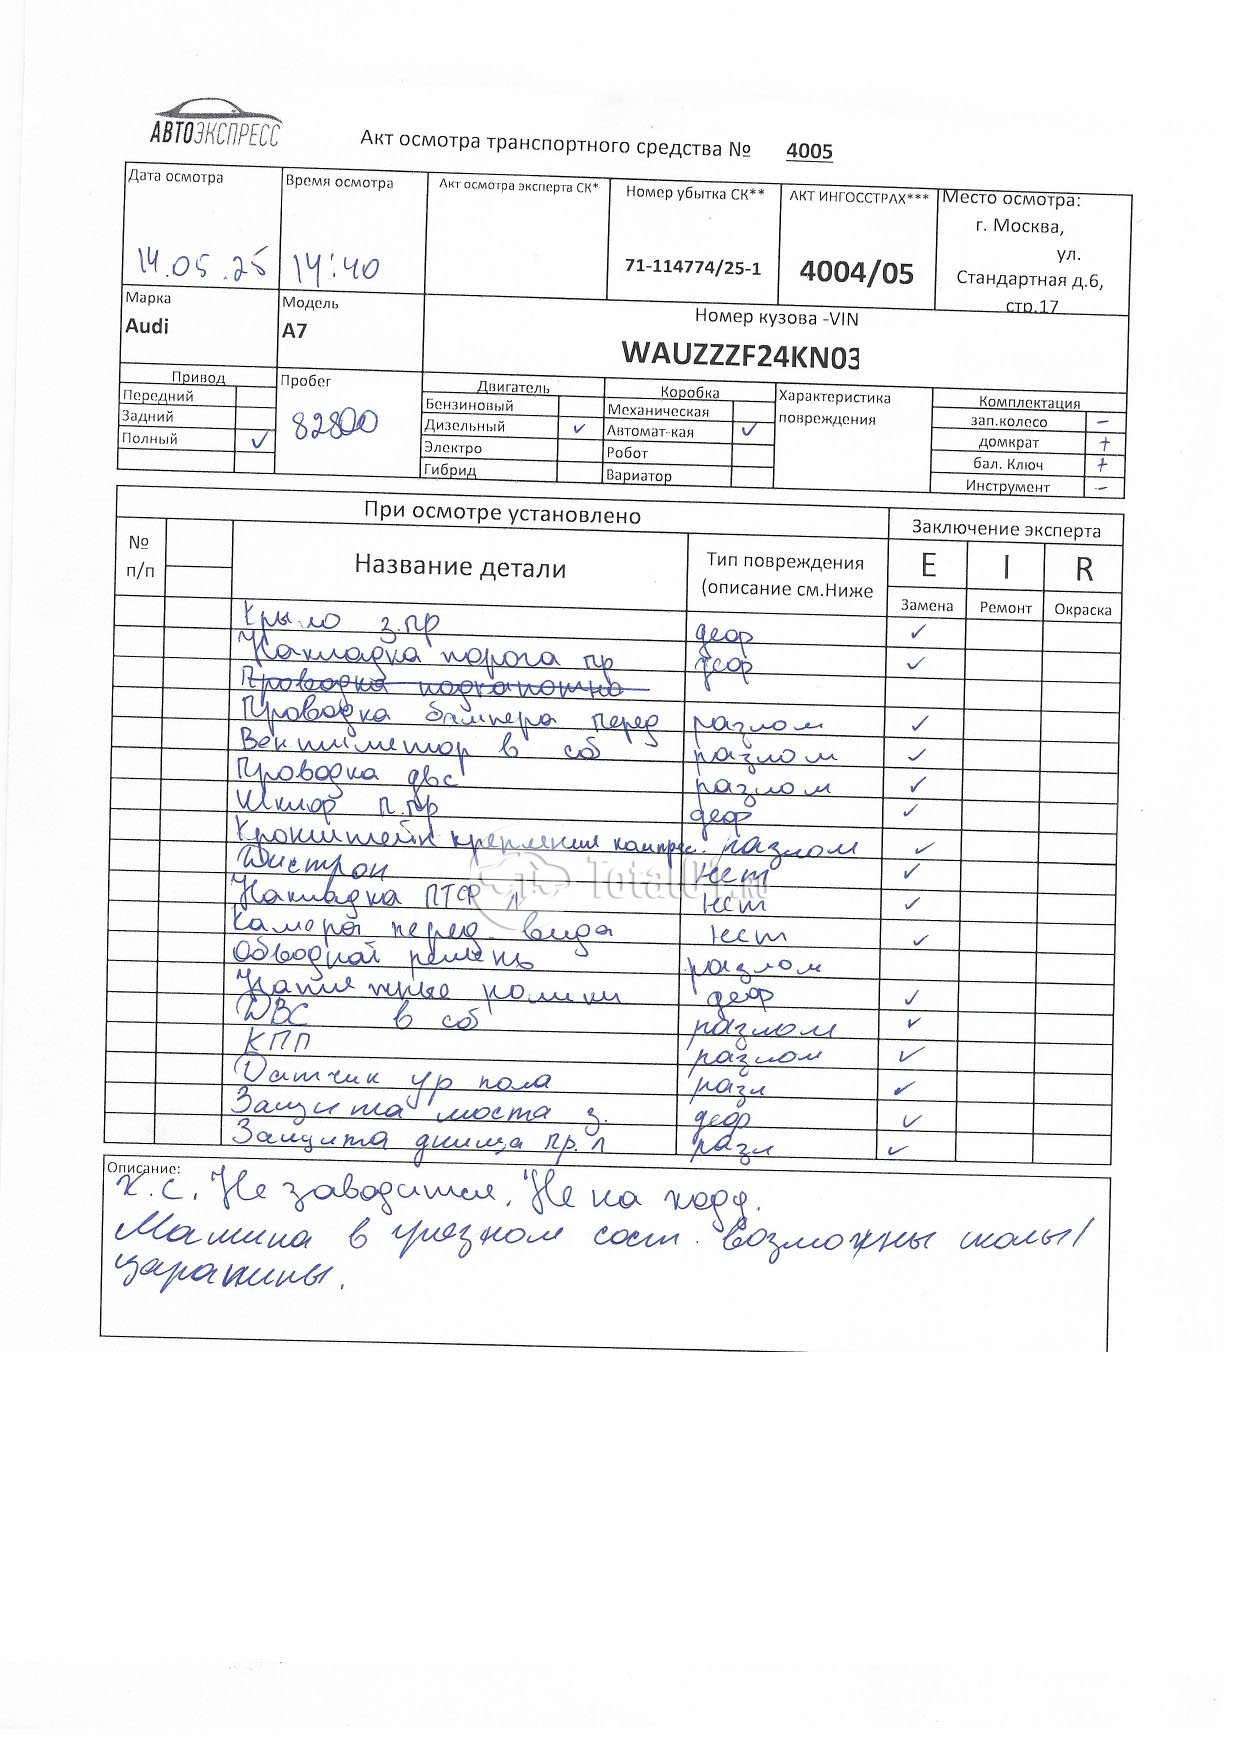 АВТОЭКСПРЕСС
Акт осмотра транспортного средства № 4005
Дата осмотра 14.05.25
Время осмотра 14:40
Акт осмотра эксперта СК*
Номер убытка СК** 71-114774/25-1
АКТ ИНГОССТРАХ*** 4004/05
Место осмотра:
г. Москва,
ул.
Стандартная д.6,
стр.17
Марка Audi
Модель A7
Номер кузова -VIN
WAUZZZF24KN03
Привод
Передний
Задний
Полный ✓
Пробег 82800
Двигатель
Бензиновый
Дизельный ✓
Электро
Гибрид
Коробка
Механическая
Автомат-кая ✓
Робот
Вариатор
Характеристика
повреждения
Комплектация
зап.колесо –
домкрат +
бал. Ключ +
Инструмент –
При осмотре установлено
Заключение эксперта
№ п/п
Название детали
Тип повреждения
(описание см.Ниже
E I R
Замена Ремонт Окраска
Крыло з.пр деф ✓
Накладка порога пр деф ✓
Проводка подкапотно
Проводка бампера перед разлом ✓
Вентилятор в сб разлом ✓
Проводка двс разлом ✓
п.пр деф ✓
Кронштейн крепления компрес. разлом ✓
Дистрон нет ✓
Накладка ПТФ л нет ✓
Камера перед. вида нет ✓
Обводной ремень разлом
Натяжные ролики деф ✓
ДВС в сб разлом ✓
КПП разлом ✓
Датчик ур пола разл ✓
Защита моста з. деф ✓
Защита днища пр. л разл ✓
Описание:
К.С. Не заводится. Не на ходу.
Машина в грязном сост. Возможны сколы/
царапины.
Total01.ru